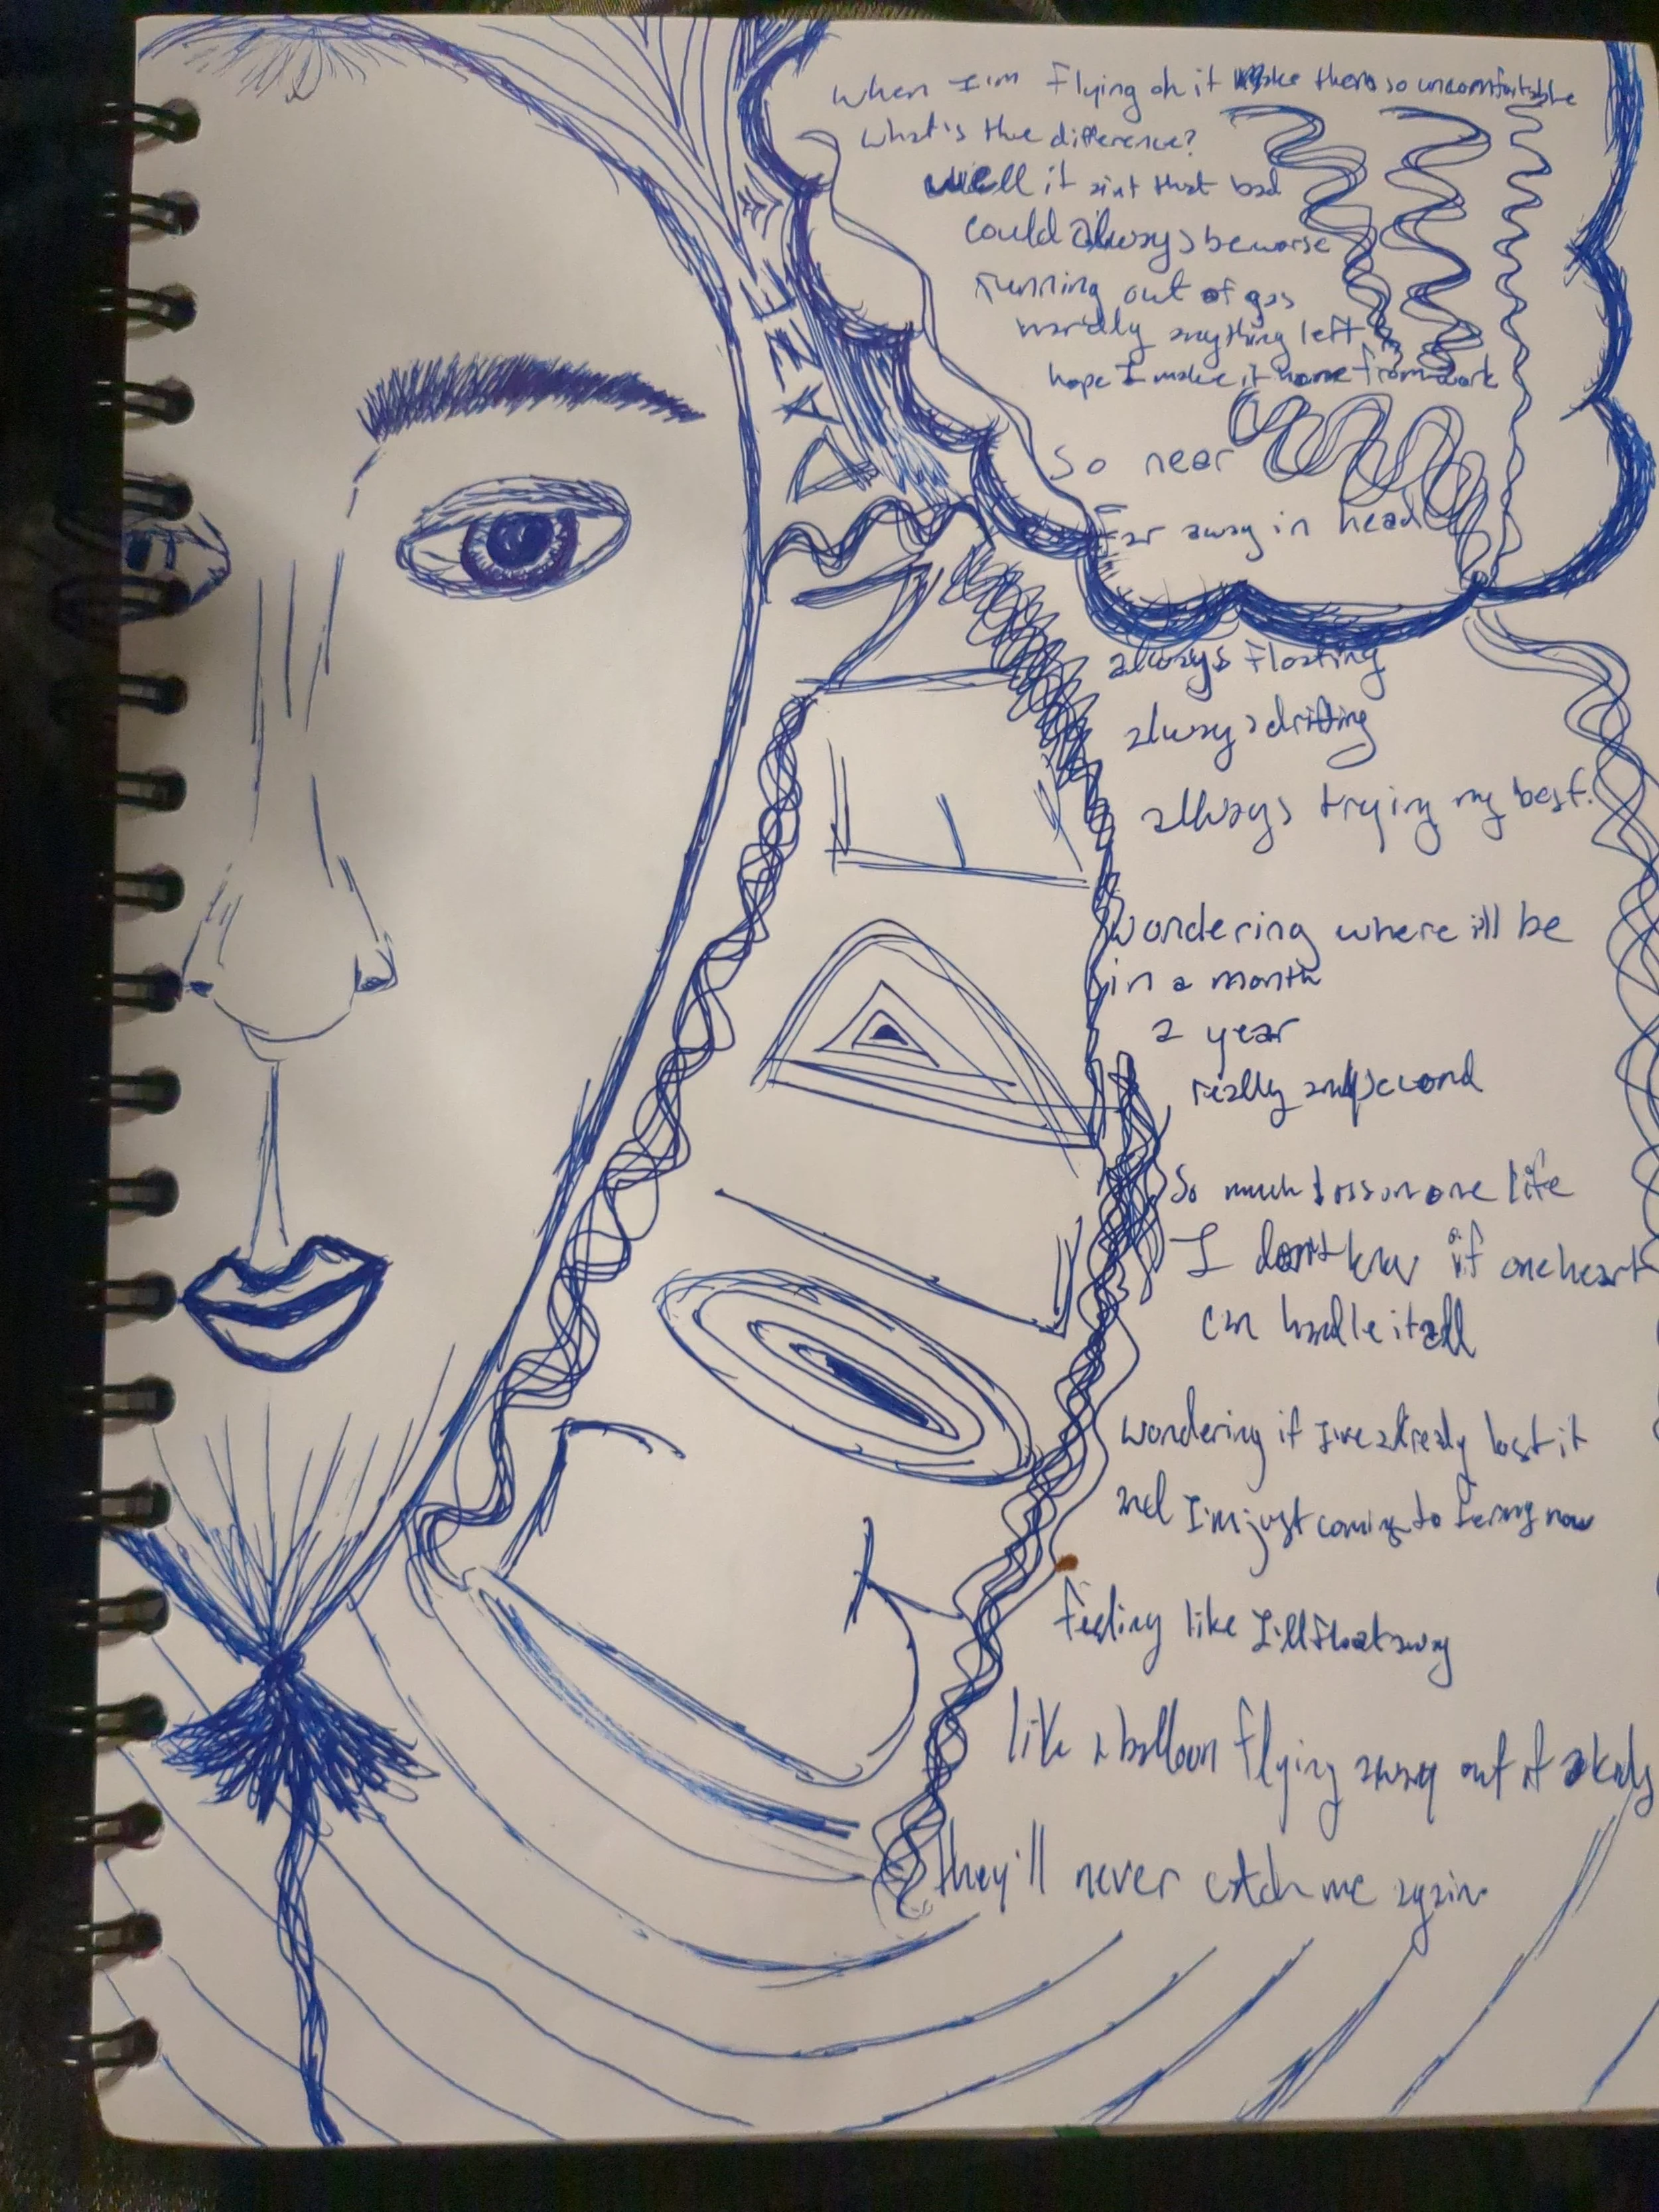 DAZE
When I'm flying oh it make them so uncomfortable
what's the difference?
well it aint that bad
could always be worse
running out of gas
hardly anything left
hope I make it home from work
So near
Far away in head
always floating
always drifting
always trying my best.
Wondering where ill be
in a month
a year
really any second
So much loss in one life
I don't know if one heart
can handle it all
wondering if I've already lost it
and I'm just coming to terms now
feeling like I'll float away
like a balloon flying away out of a kids
they'll never catch me again